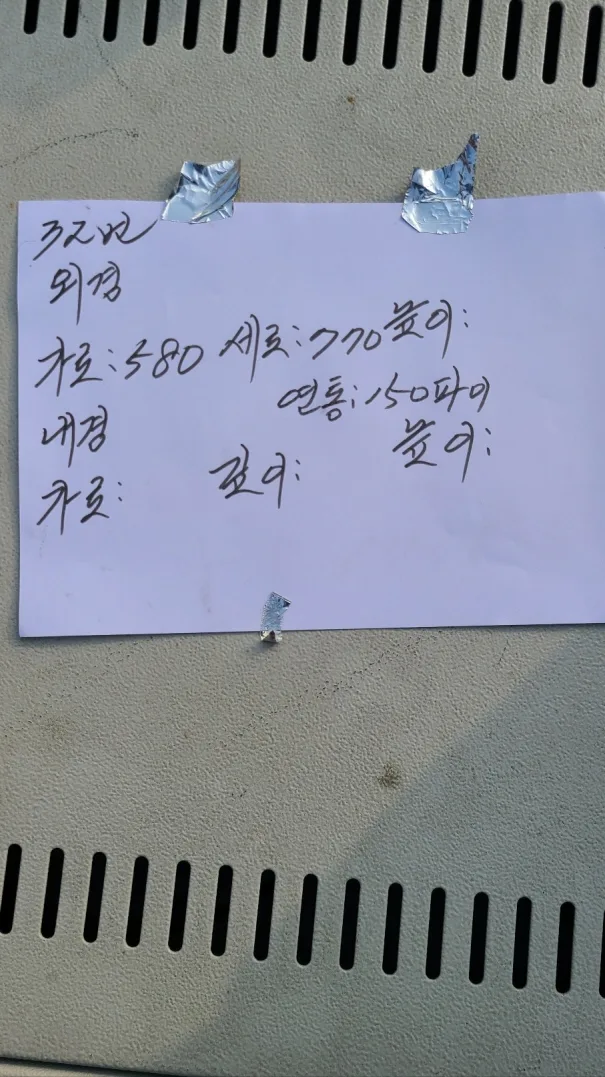 32번
외경
가로:580 세로:770 높이:
연통:150파이
내경
가로: 깊이: 높이: